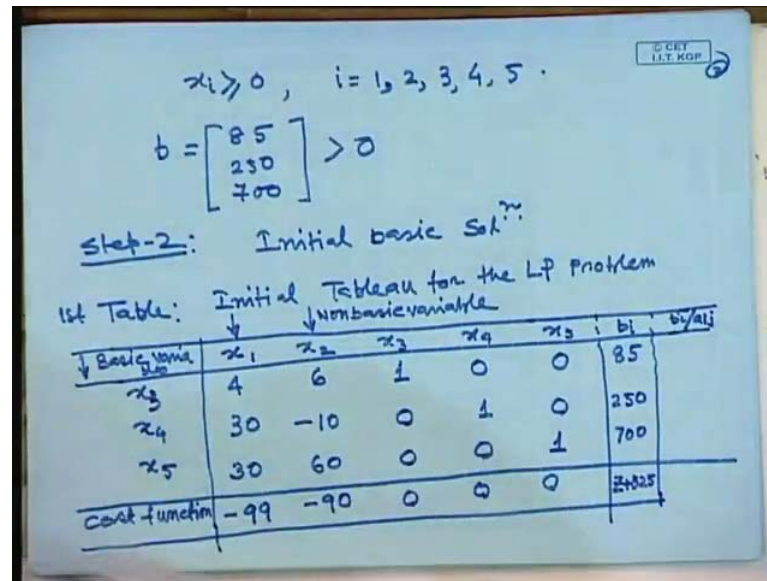 © CET
I.I.T. KGP
2
xi ≥ 0, i = 1, 2, 3, 4, 5.
b = [85 250 700] > 0
Step-2: Initial basic Solⁿ:
1st Table: Initial Tableau for the LP problem
↓ ↓ Nonbasic variable
↓ Basic variables x1 x2 x3 x4 x5 bi bi/aij
x3 4 6 1 0 0 85
x4 30 -10 0 1 0 250
x5 30 60 0 0 1 700
Cost function -99 -90 0 0 0 Z+825